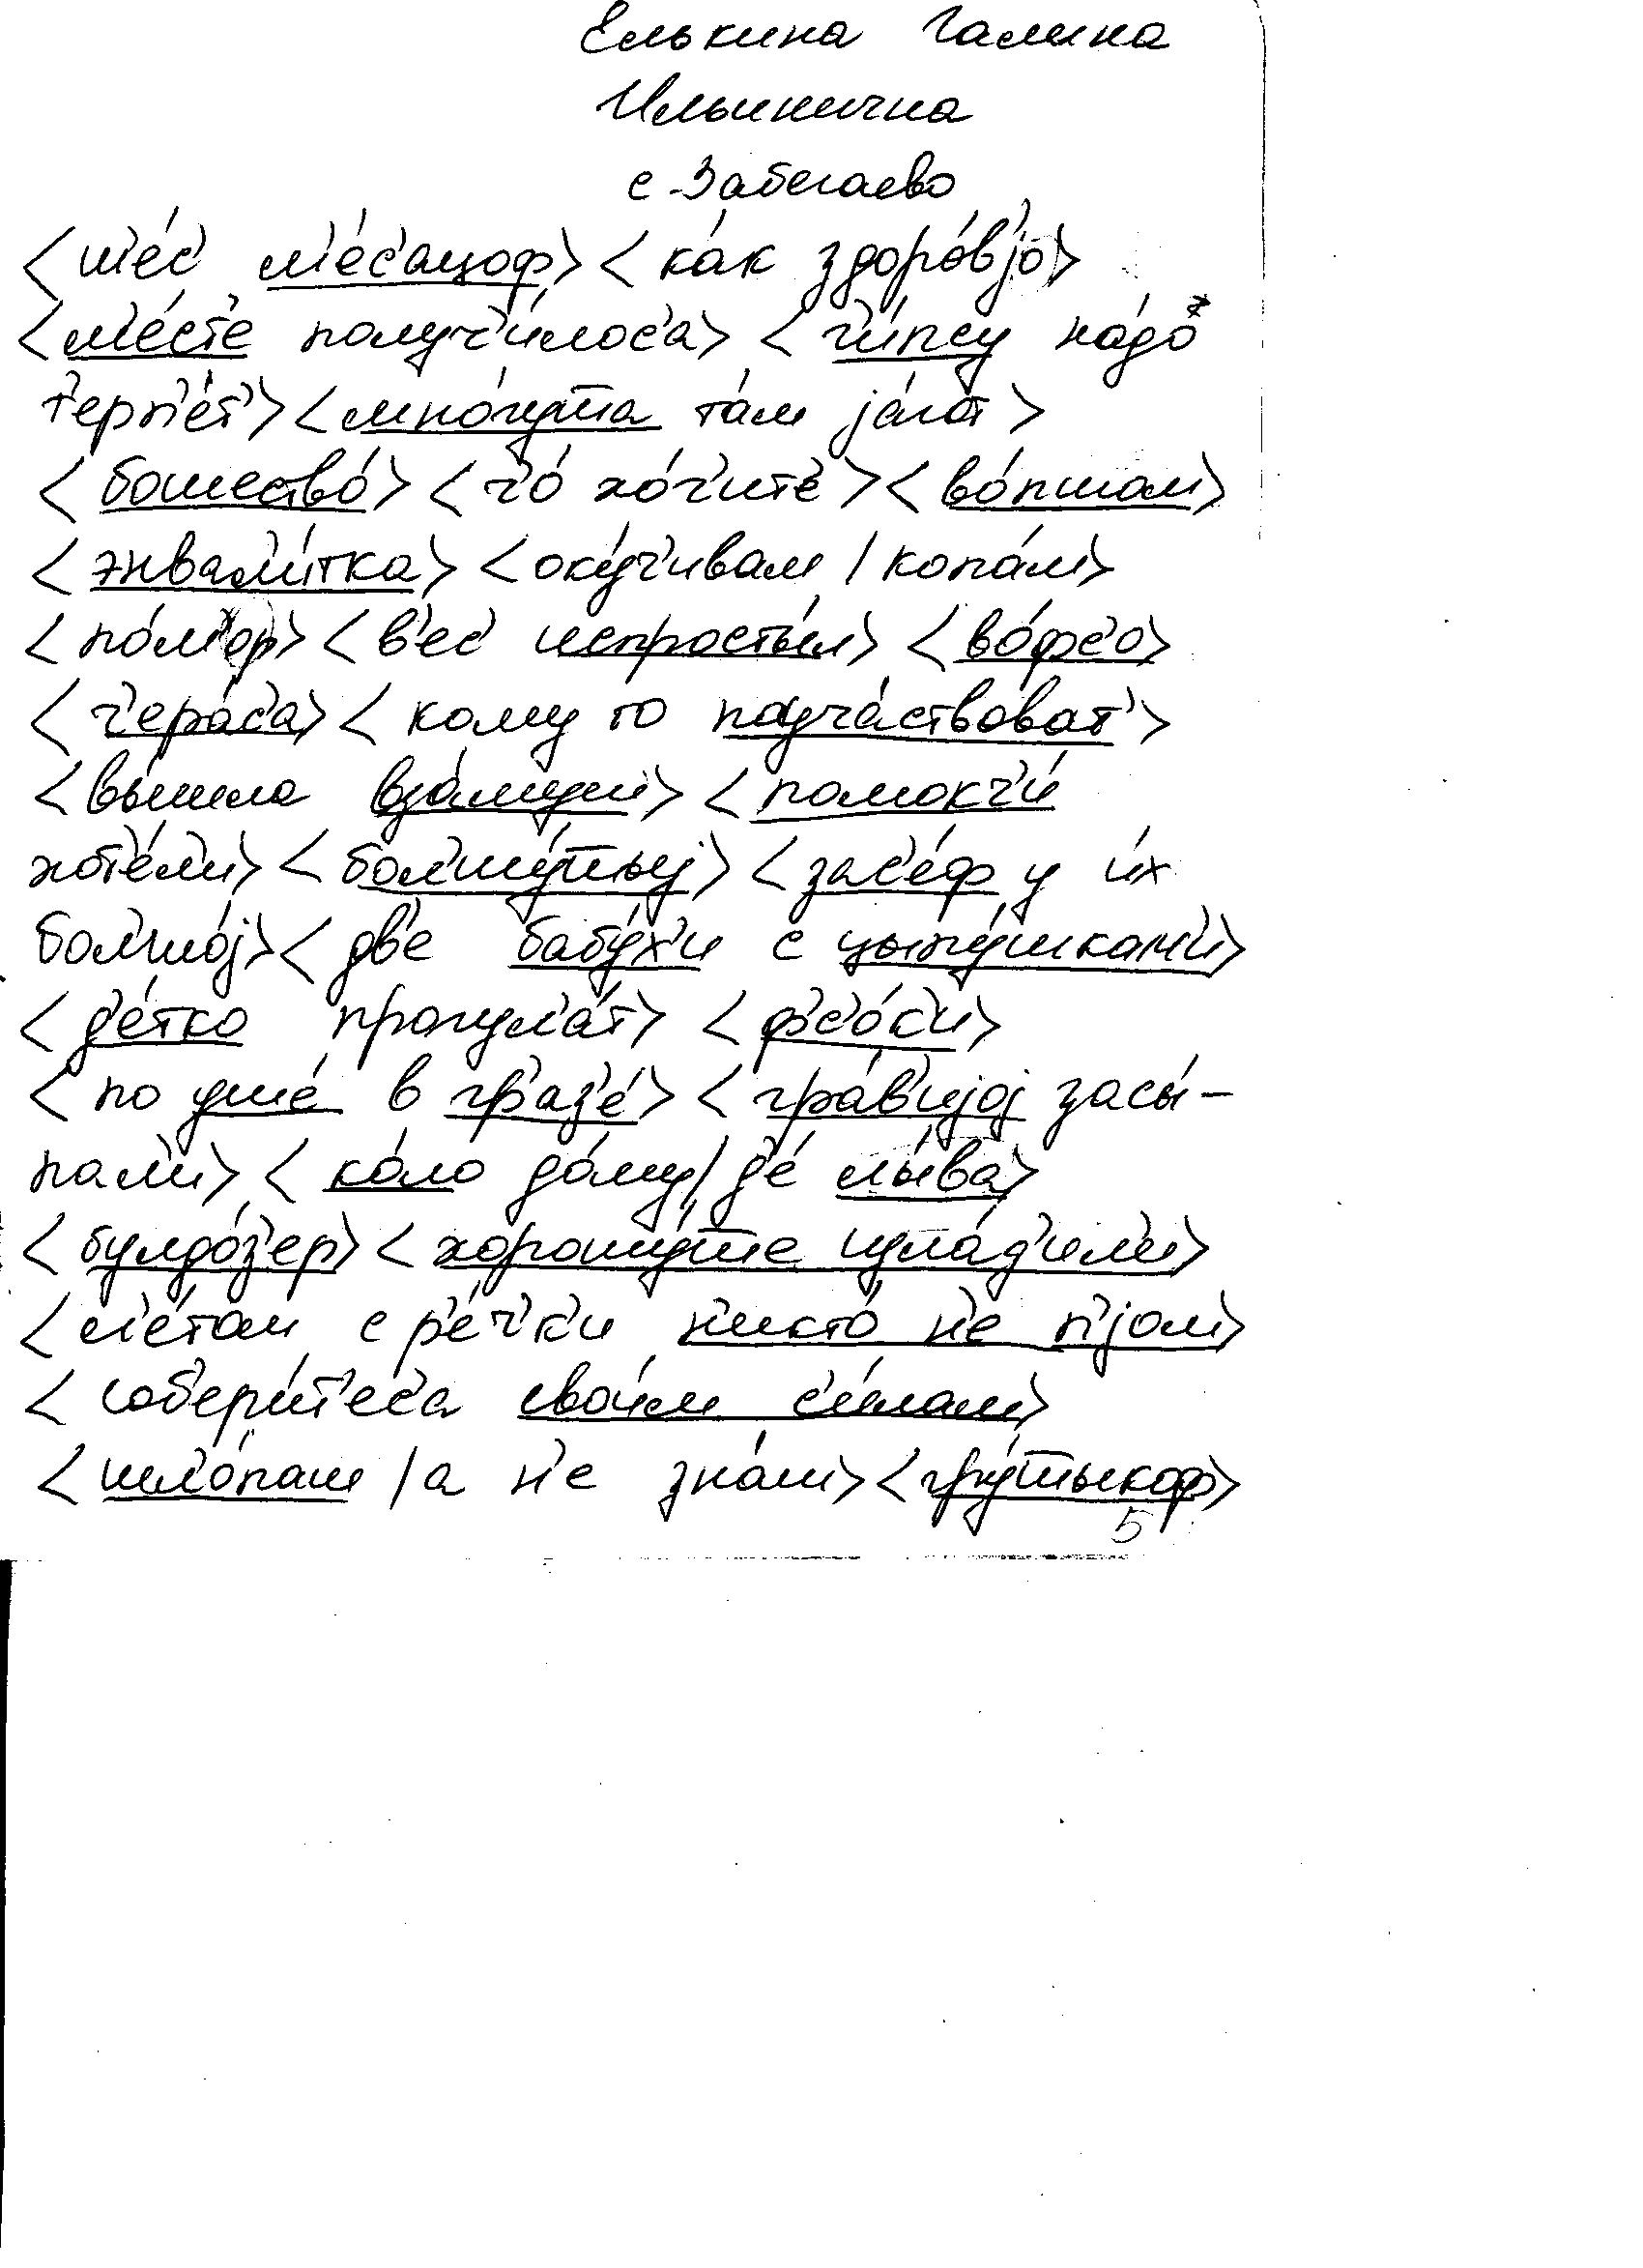 Елькина Галина
Ильинична
с. Забегаево
<ш'е́с' м'е́с'ацоф> <ка́к здоро́в'jо>
<м'е́с'т'е получ'и́лос'а> <г'и́псу на́до
т'ерп'е́т'> <мно́гу̅та та́м jа́гот>
<бошество́> <ч'о́ хо́ч'ит'е> <во́пшом>
<энвал'и́тка> <оку́ч'ивам / копа́м>
<по́м'ор> <в'ес' испросты́л> <во́фс'о>
<ч'ера́с'а> <кому то поуча́ствоват'>
<вы́шла вза́муш> <помокч'и́
хот'е́л'и> <бол'шу́т̅ыj> <зас'е́ф у и́х
бол'шо́j> <дв'е бабу́х'и с цыпу́шкам'и>
<д'е́тко прогул'а́т> <ф'с'о́к'и>
<по уше́ в гр'аз'е́> <гра́в'иjоj засы́-
пал'и> <ко́ло до́му / д'е́ лы́ва>
<булдо́з'ер> <хорошу́т̅е изла́д'ил'и>
<л'е́том с р'е́ч'к'и н'икто́ н'е п'jом>
<собер'и́т'ес'а свои́м с'и́лам>
<шл'о́пам / а н'е зна́м> <гру́т̅ыкоф>
5